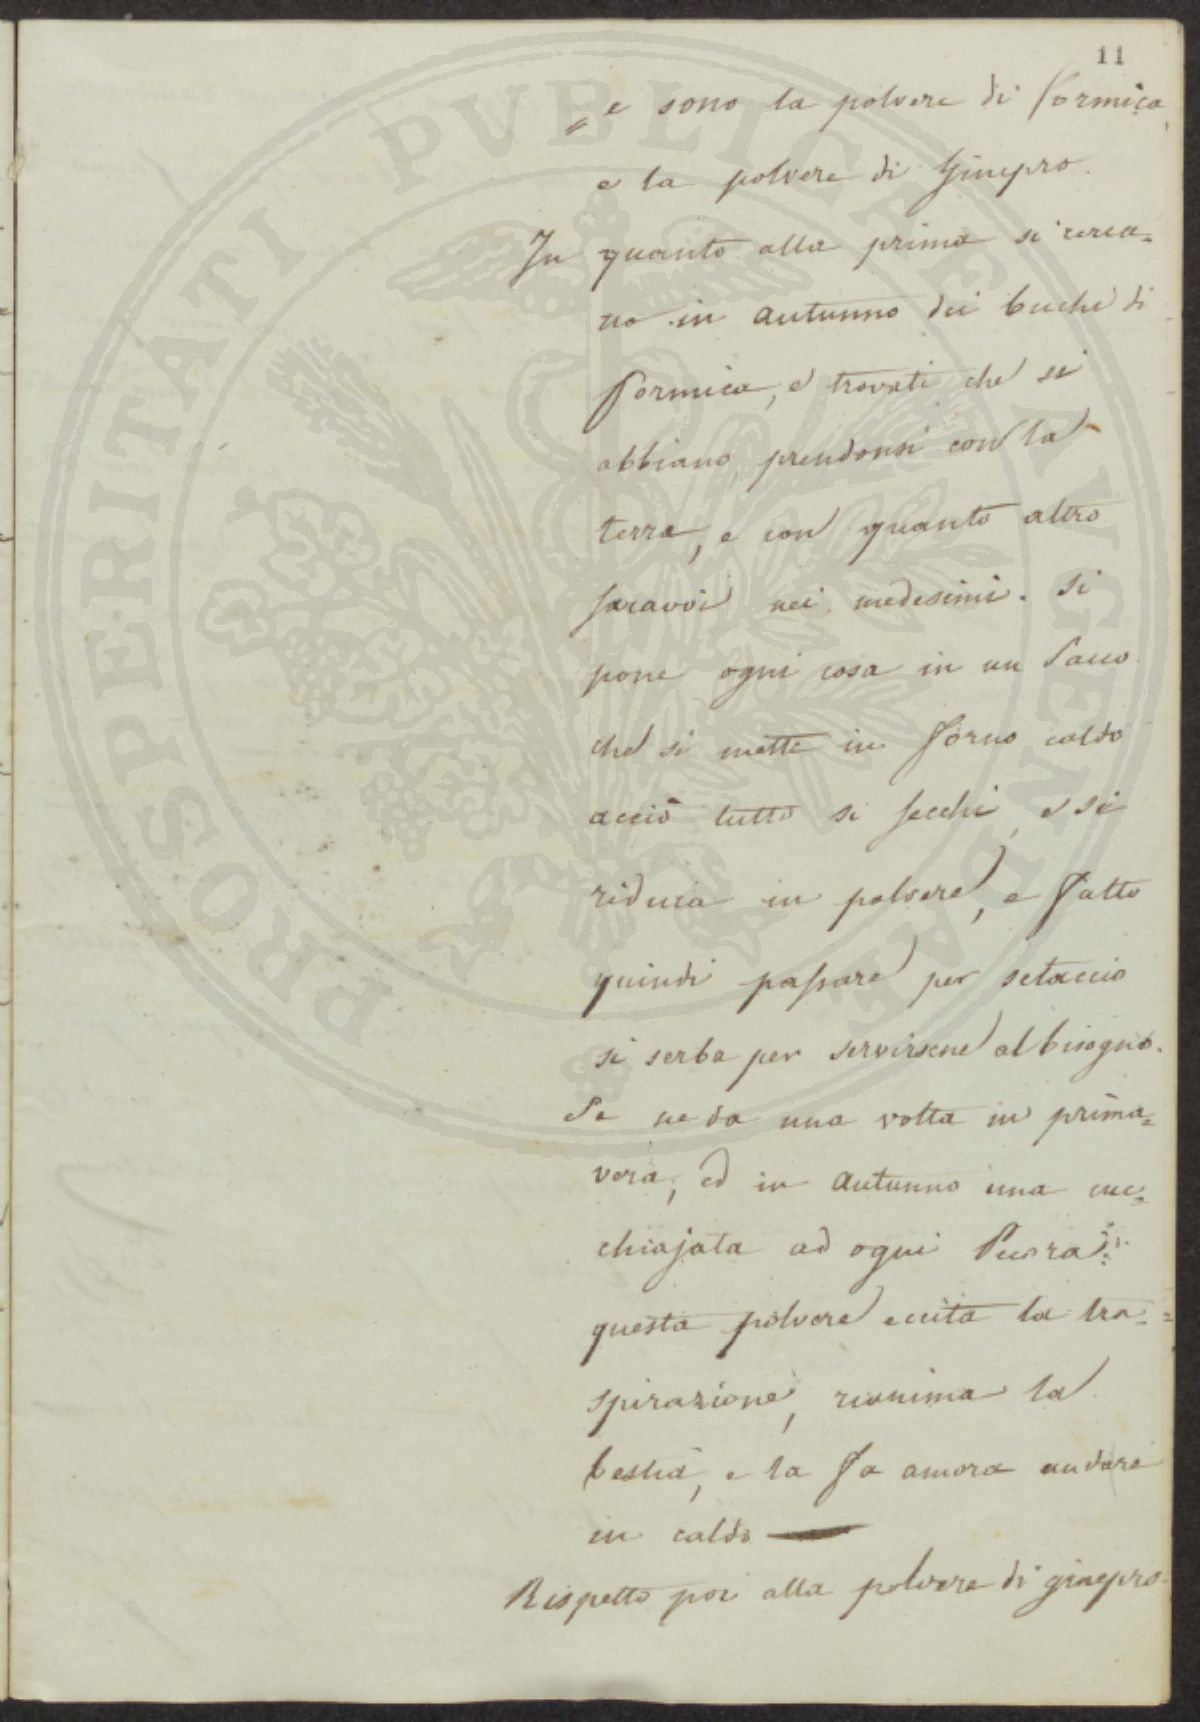 11
e sono la polvere di formica,
= e la polvere di Ginepro.
In quanto alla prima si cerca=
no in autunno dei buchi di
formica, e trovati che si
abbiano prendonsi con la
terra, e con quanto altro
saravvi nei medesimi. Si
pone ogni cosa in un Sacco
che si mette in forno caldo
acciò tutto si secchi, e si
riduca in polvere, e fatto
quindi passare per setaccio
si serba per servirsene al bisogno.
Se ne da una volta in prima=
vera, ed in autunno una cuc=
chiajata ad ogni Pecora:
questa polvere eccita la tra=
spirazione, rianima la
bestia, e la fa ancora andare
in caldo —
Rispetto poi alla polvere di ginepro
PROSPERITATI PVBLICAE AVGENDAE